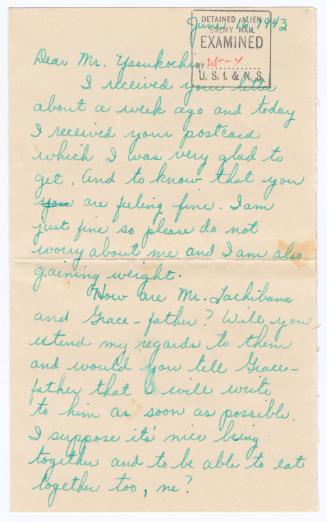 June 16, 1943
DETAINED ALIEN
ENEMY MAIL
EXAMINED
BY
U. S. I. & N. S.
Dear Mr. Yasukochi,
I received your letter
about a week ago and today
I received your postcard
which I was very glad to
get. And to know that you
you are feeling fine. I am
just fine so please do not
worry about me and I am also
gaining weight.
How are Mr. Tachibana
and Grace-father? Will you
extend my regards to them
and would you tell Grace-
father that I will write
to him as soon as possible.
I suppose it's nice being
together and to be able to eat
together too, ne?